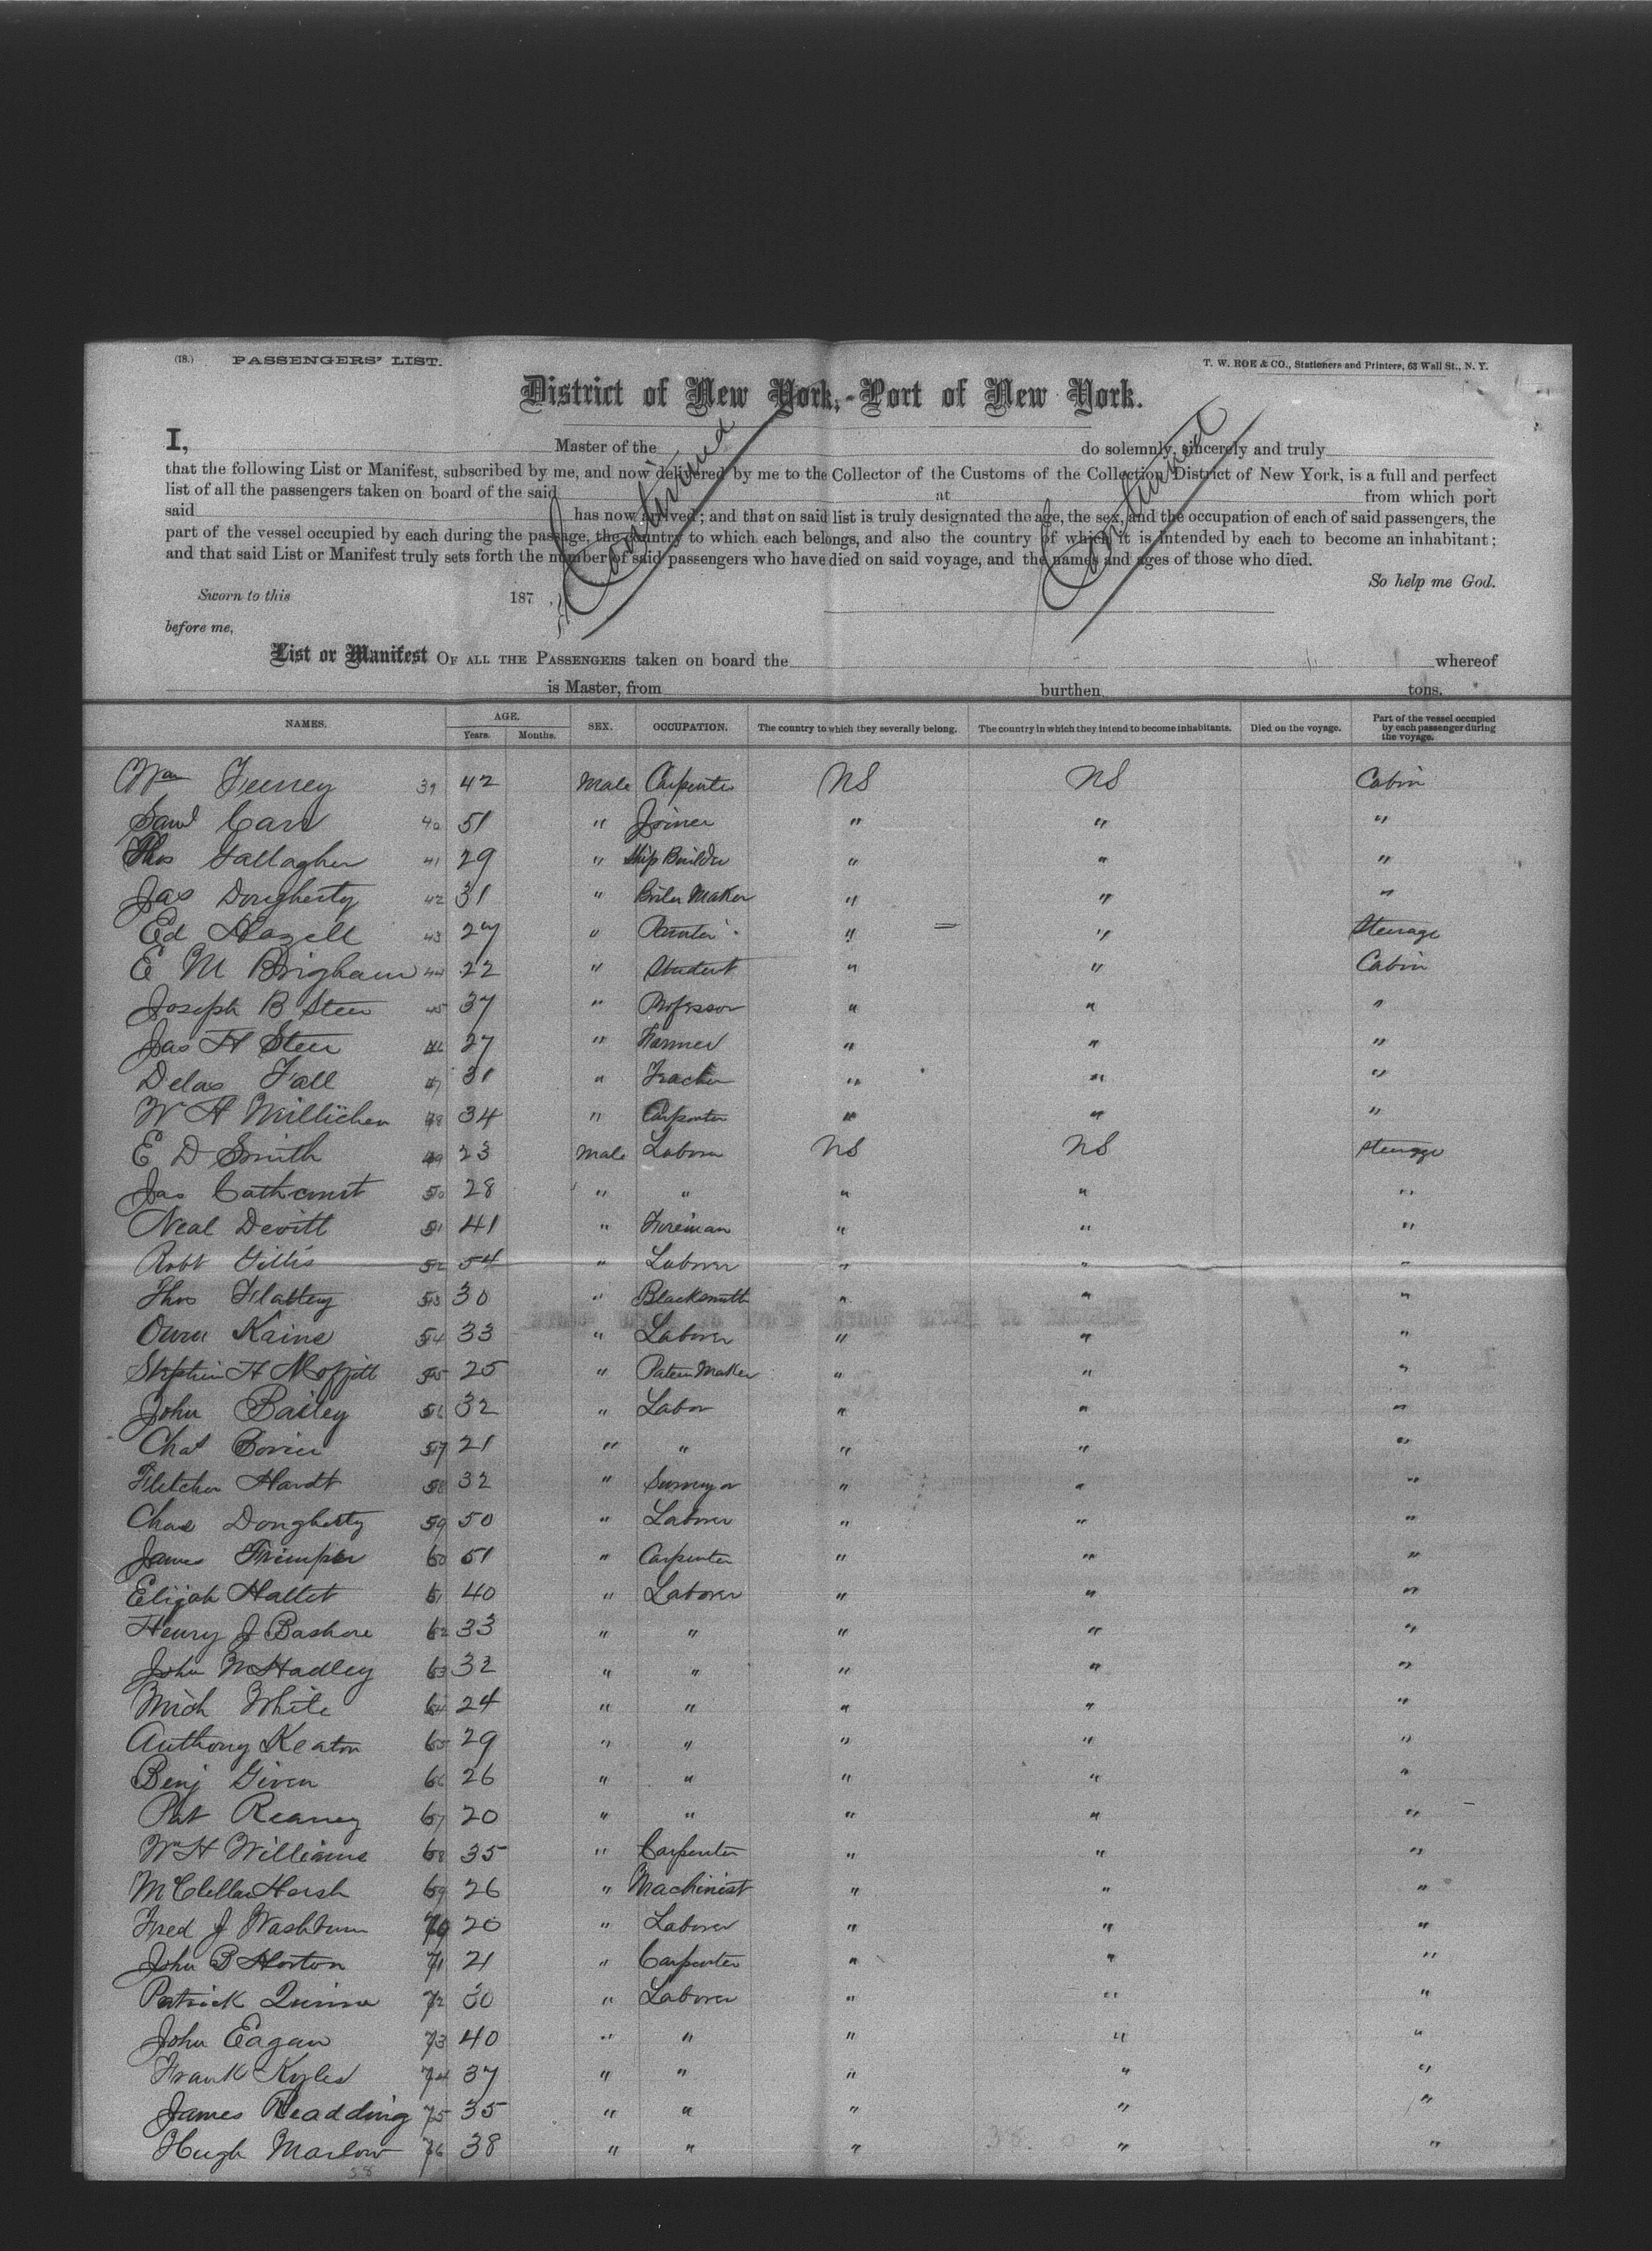 (18.) PASSENGERS' LIST. T. W. ROE & CO., Stationers and Printers, 63 Wall St., N. Y.
District of New York,-Port of New York.
I, Master of the do solemnly, sincerely and truly
that the following List or Manifest, subscribed by me, and now delivered by me to the Collector of the Customs of the Collection District of New York, is a full and perfect
list of all the passengers taken on board of the said at from which port
said has now arrived; and that on said list is truly designated the age, the sex, and the occupation of each of said passengers, the
part of the vessel occupied by each during the passage, the country to which each belongs, and also the country of which it is intended by each to become an inhabitant;
and that said List or Manifest truly sets forth the number of said passengers who have died on said voyage, and the names and ages of those who died.
Continued Continued
So help me God.
Sworn to this 187
before me,
List or Manifest OF ALL THE PASSENGERS taken on board the whereof
is Master, from burthen tons.
NAMES. AGE. Years. Months. SEX. OCCUPATION. The country to which they severally belong. The country in which they intend to become inhabitants. Died on the voyage. Part of the vessel occupied by each passenger during the voyage.
Wm Feeney 39 42 Male Carpenter NS NS Cabin
Saml Carr 40 51 " Joiner " " "
Thos Gallagher 41 29 " Ship Builder " " "
Jas Dougherty 42 31 " Boiler Maker " " "
Ed Hazell 43 27 " Painter " " Steerage
E M Brigham 44 22 " Student " " Cabin
Joseph B Steere 45 37 " Professor " " "
Jas H Steere 46 27 " Farmer " " "
Delos Fall 47 31 " Teacher " " "
W H Millichen 48 34 " Carpenter " " "
E D Smith 49 23 Male Laborer NS NS Steerage
Jas Cathcourt 50 28 " " " " "
Neal Devitt 51 41 " Fireman " " "
Robt Gillis 52 54 " Laborer " " "
Thos Flattey 53 30 " Blacksmith " " "
Owen Kaine 54 33 " Laborer " " "
Stephen H Moffitt 55 25 " Patern Maker " " "
John Bailey 56 32 " Labor " " "
Chas 57 21 " " " " "
Fletcher Hardt 58 32 " Surveyor " " "
Chas Dougherty 59 50 " Laborer " " "
James Trimper 60 51 " Carpenter " " "
Elijah Hallet 61 40 " Laborer " " "
Henry J Bashore 62 33 " " " " "
John McHadley 63 32 " " " " "
Mich White 64 24 " " " " "
Anthony Keaton 65 29 " " " " "
Benj Given 66 26 " " " " "
Pat Reaney 67 20 " " " " "
Wm H Williams 68 35 " Carpenter " " "
McClellan Hersh 69 26 " Machinist " " "
Fred J Washburn 70 20 " Laborer " " "
John B Horton 71 21 " Carpenter " " "
Patrick Quinn 72 30 " Laborer " " "
John Eagan 73 40 " " " " "
Frank Kyles 74 37 " " " " "
James Readding 75 35 " " " " "
Hugh Marlow 76 38 " " " " "
38 38